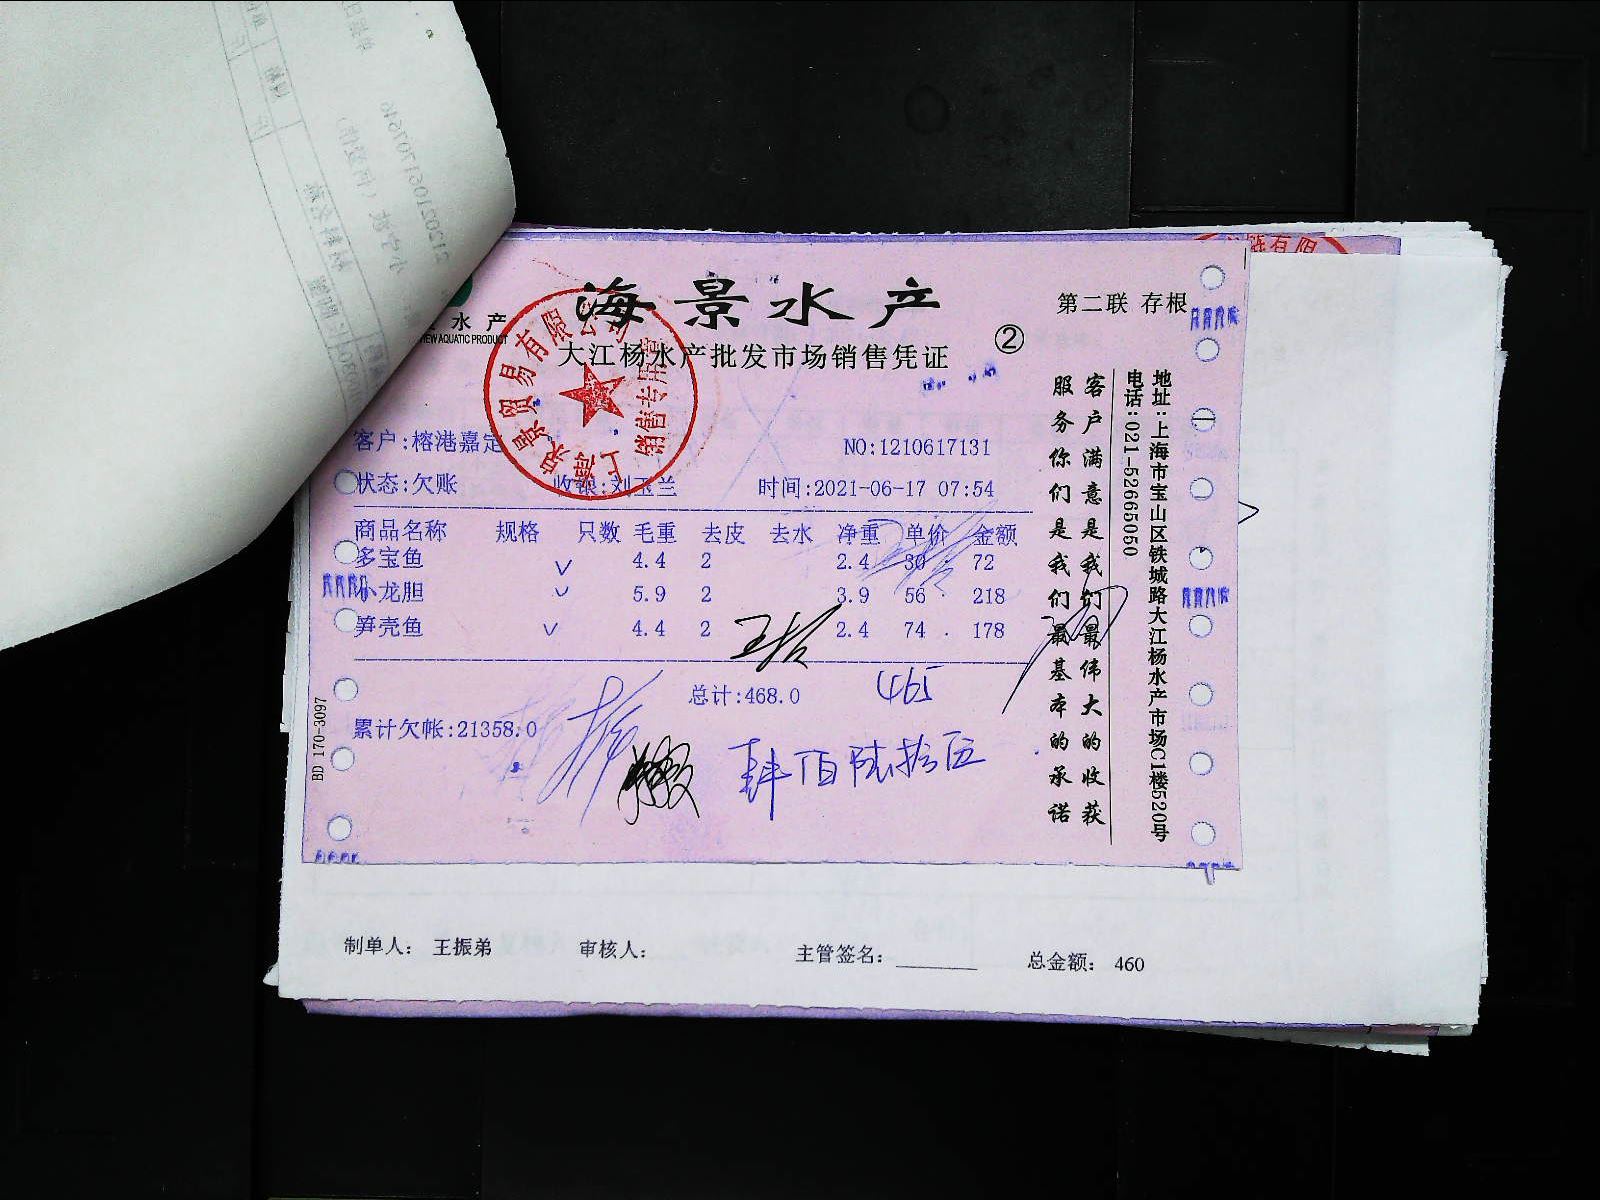 海景水产
第二联 存根
水产
VIEW AQUATIC PRODUCT
大江杨水产批发市场销售凭证
②
客户:榕港嘉定
NO:1210617131
状态:欠账 收银:刘玉兰 时间:2021-06-17 07:54
商品名称 规格 只数 毛重 去皮 去水 净重 单价 金额
多宝鱼 4.4 2 2.4 30 72
小龙胆 5.9 2 3.9 56 218
笋壳鱼 4.4 2 2.4 74 178
总计:468.0 465
累计欠帐:21358.0
肆佰陆拾伍
BD 170-3097
客户满意是我们最伟大的收获
服务你们是我们最基本的承诺
地址:上海市宝山区铁城路大江杨水产市场C1楼520号
电话:021-52665050
销售专用章
制单人: 王振弟 审核人: 主管签名: 总金额: 460